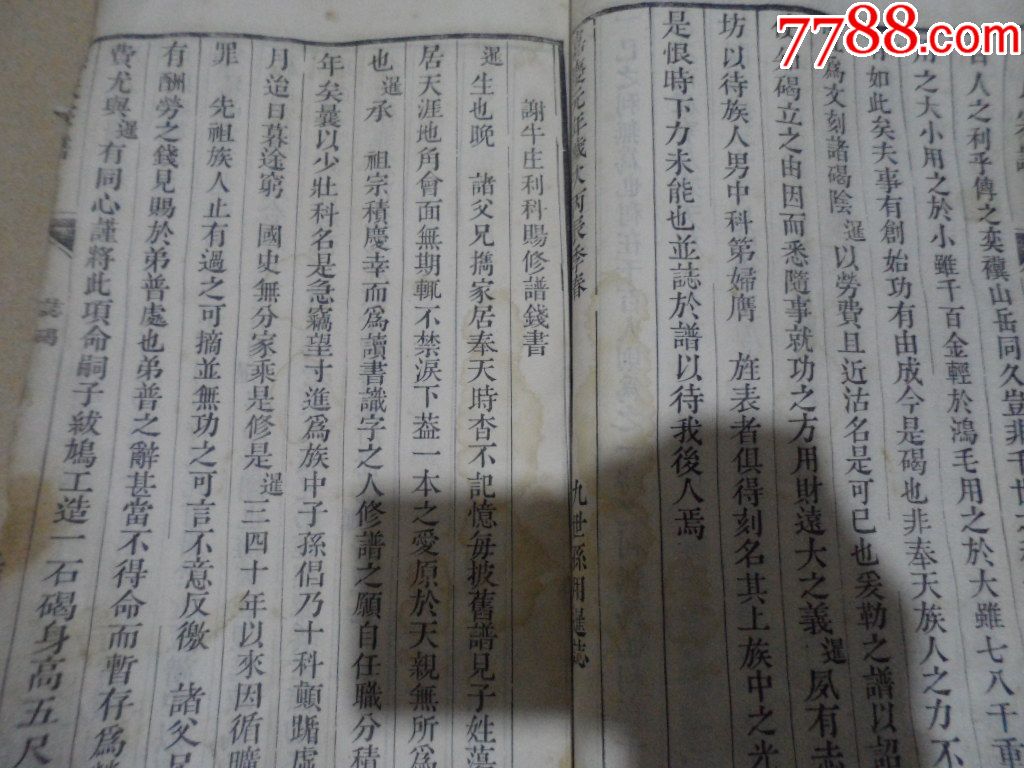 7788.com
古人之利乎傳之奕禩山岳同久豈非千廿
用之大小用之於小雖千百金輕於鴻毛用之於大雖七八千重
如此矣夫事有創始功有由成今是碣也非奉天族人之力不
為文刻諸碣陰暹以勞費且近沽名是可已也爰勒之譜以詔
碣立之由因而悉隨事就功之方用財遠大之義暹夙有志
坊以待族人男中科第婦膺 旌表者俱得刻名其上族中之光
是恨時下力未能也並誌於譜以待我後人焉
元年歲次丙辰季春 九世孫用暹誌
謝牛庄利科賜修譜錢書
暹生也晚 諸父兄攜家居奉天時杳不記憶每披舊譜見子姓蕩
居天涯地角會面無期輒不禁淚下葢一本之愛原於天親無所為
也暹承 祖宗積慶幸而為讀書識字之人修譜之願自任職分積
年矣曩以少壯科名是急竊望寸進為族中子孫倡乃十科顛躓虛
月迨日暮途窮 國史無分家乘是修是暹三四十年以來因循曠
罪 先祖族人止有過之可摘並無功之可言不意反徼 諸父兄
有酬勞之錢見賜於弟普處也弟普之辭甚當不得命而暫存為
費尤與暹有同心謹將此項命嗣子紱鳩工造一石碣身高五尺